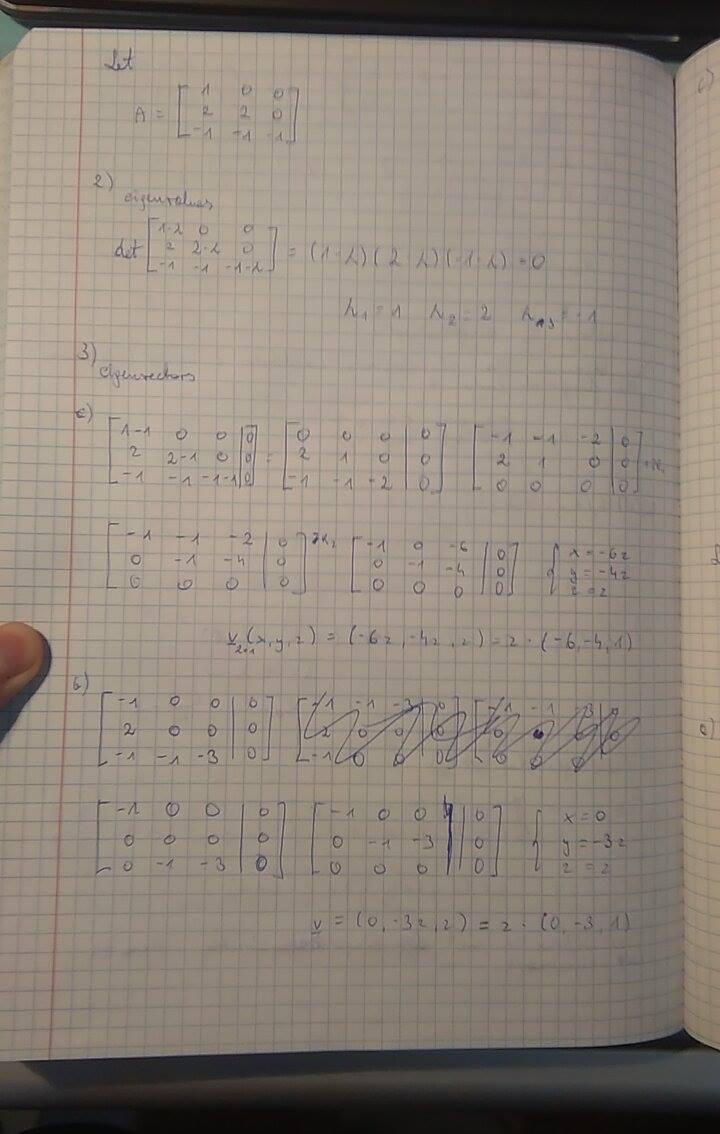 Let
A = [ 1 0 0
2 2 0
-1 -1 -1 ]
2)
eigenvalues
det [ 1-λ 0 0
2 2-λ 0
-1 -1 -1-λ ] = (1-λ)(2-λ)(-1-λ) = 0
λ₁ = 1 λ₂ = 2 λ₃ = -1
3)
eigenvectors
[ 1-1 0 0 | 0
2 2-1 0 | 0
-1 -1 -1-1 | 0 ] = [ 0 0 0 | 0
2 1 0 | 0
-1 -1 -2 | 0 ] [ -1 -1 -2 | 0
2 1 0 | 0
0 0 0 | 0 ]
[ -1 -1 -2 | 0
0 -1 -4 | 0
0 0 0 | 0 ] [ -1 0 -6 | 0
0 -1 -4 | 0
0 0 0 | 0 ] { x = -6z
y = -4z
z = z
(x, y, z) = (-6z, -4z, z) = z · (-6, -4, 1)
b)
[ -1 0 0 | 0
2 0 0 | 0
-1 -1 -3 | 0 ]
[ -1 0 0 | 0
0 0 0 | 0
0 -1 -3 | 0 ] [ -1 0 0 | 0
0 -1 -3 | 0
0 0 0 | 0 ] { x = 0
y = -3z
z = z
v = (0, -3z, z) = z · (0, -3, 1)